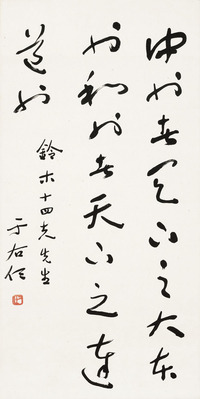 中也者天下之大本
也和也者天下之達
道也
鈴木十四克先生
于右任